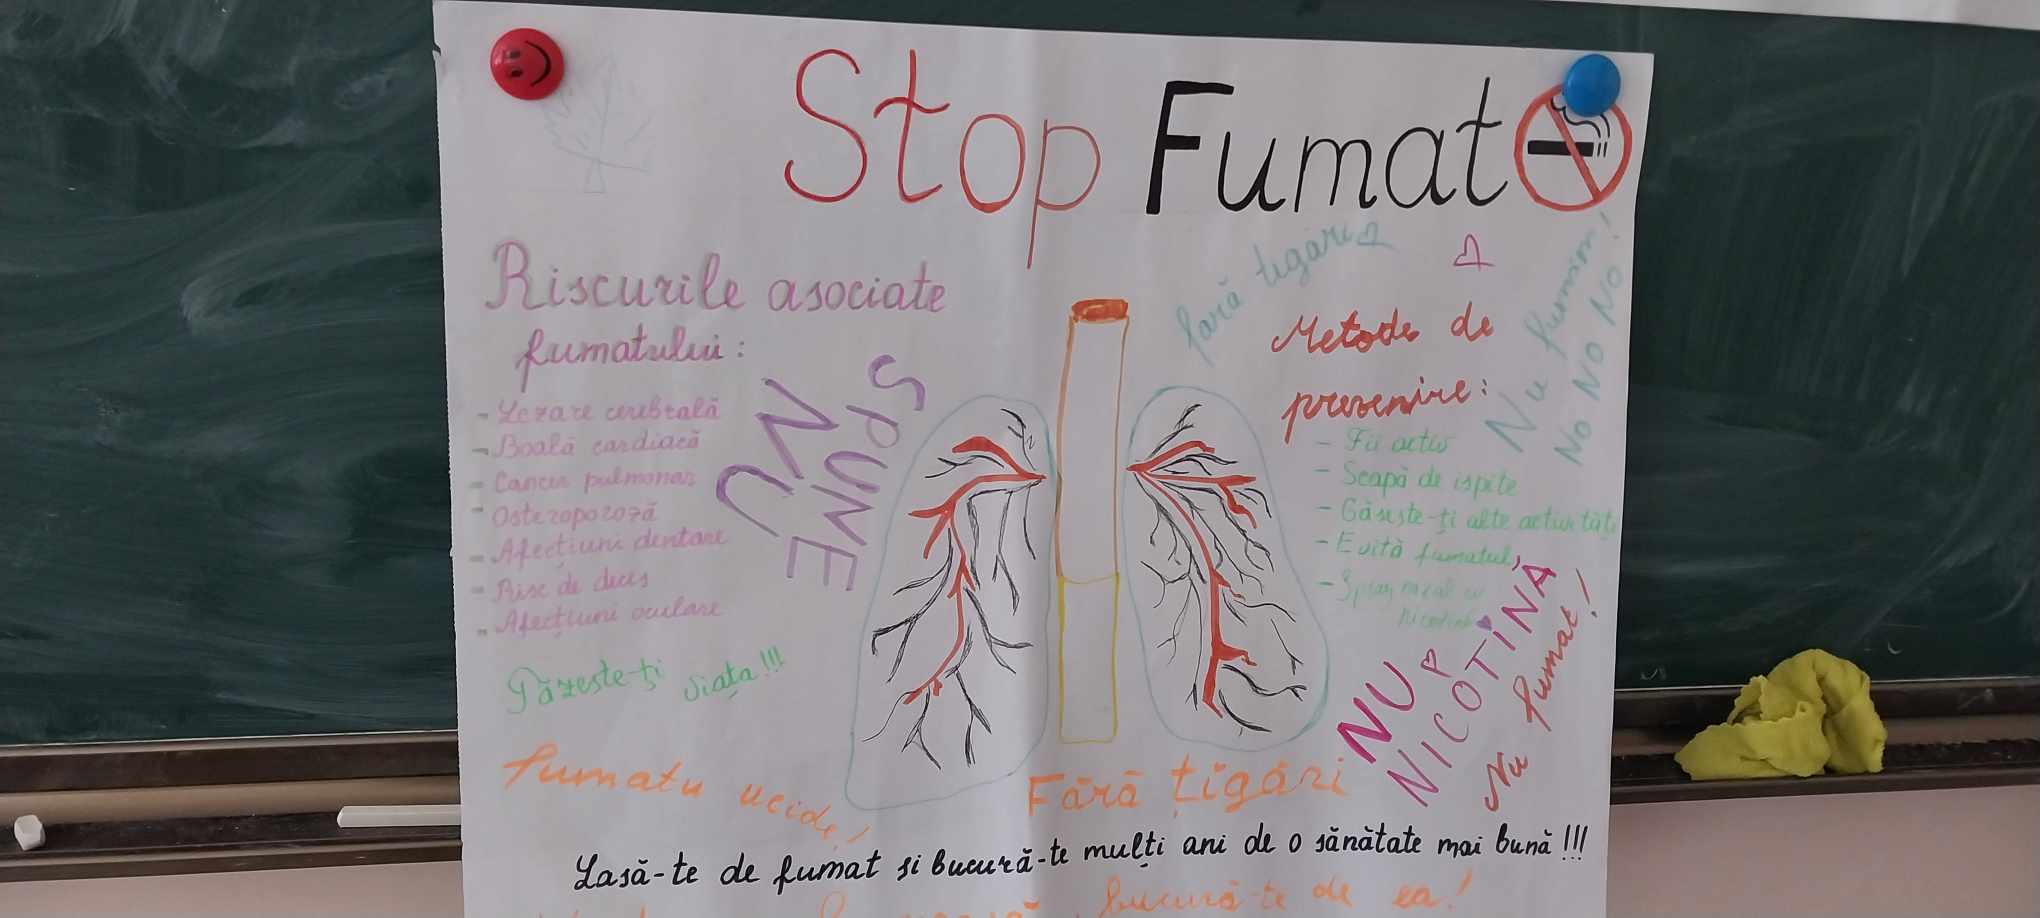 Stop Fumat
Riscurile asociate
fumatului:
- Lezare cerebrală
- Boală cardiacă
- Cancer pulmonar
- Osteroporoză
- Afecțiuni dentare
- Risc de deces
- Afecțiuni oculare
Păzește-ți viața!!!
SPUNE
NU
fără țigări
Metode de
prevenire:
- Fii activ
- Scapă de ispite
- Găsește-ți alte activități
- Evită fumatul
- Spray nazal cu
Nu fumăm!
No NO NO
NU
NICOTINĂ
Nu fumat!
fumatu ucide!
Fără țigări
Lasă-te de fumat si bucură-te mulți ani de o sănătate mai bună!!!
bucură-te de ea!